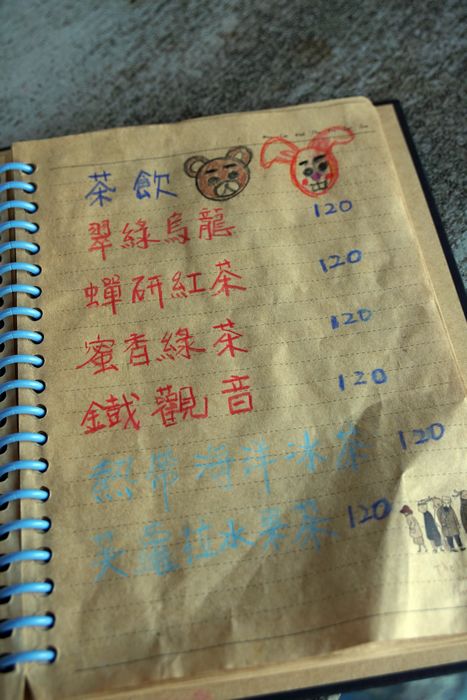 茶飲
翠綠烏龍 120
蟬研紅茶 120
蜜香綠茶 120
鐵觀音 120
熱帶海洋冰茶 120
水果茶 120